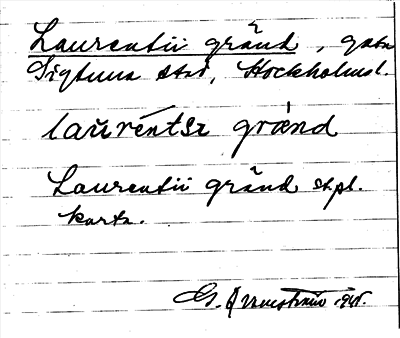 Laurentii gränd, gata
Sigtuna stad, Stockholms l.
laŭréntsı grænd
Laurentii gränd st.pl.
karta.
G.